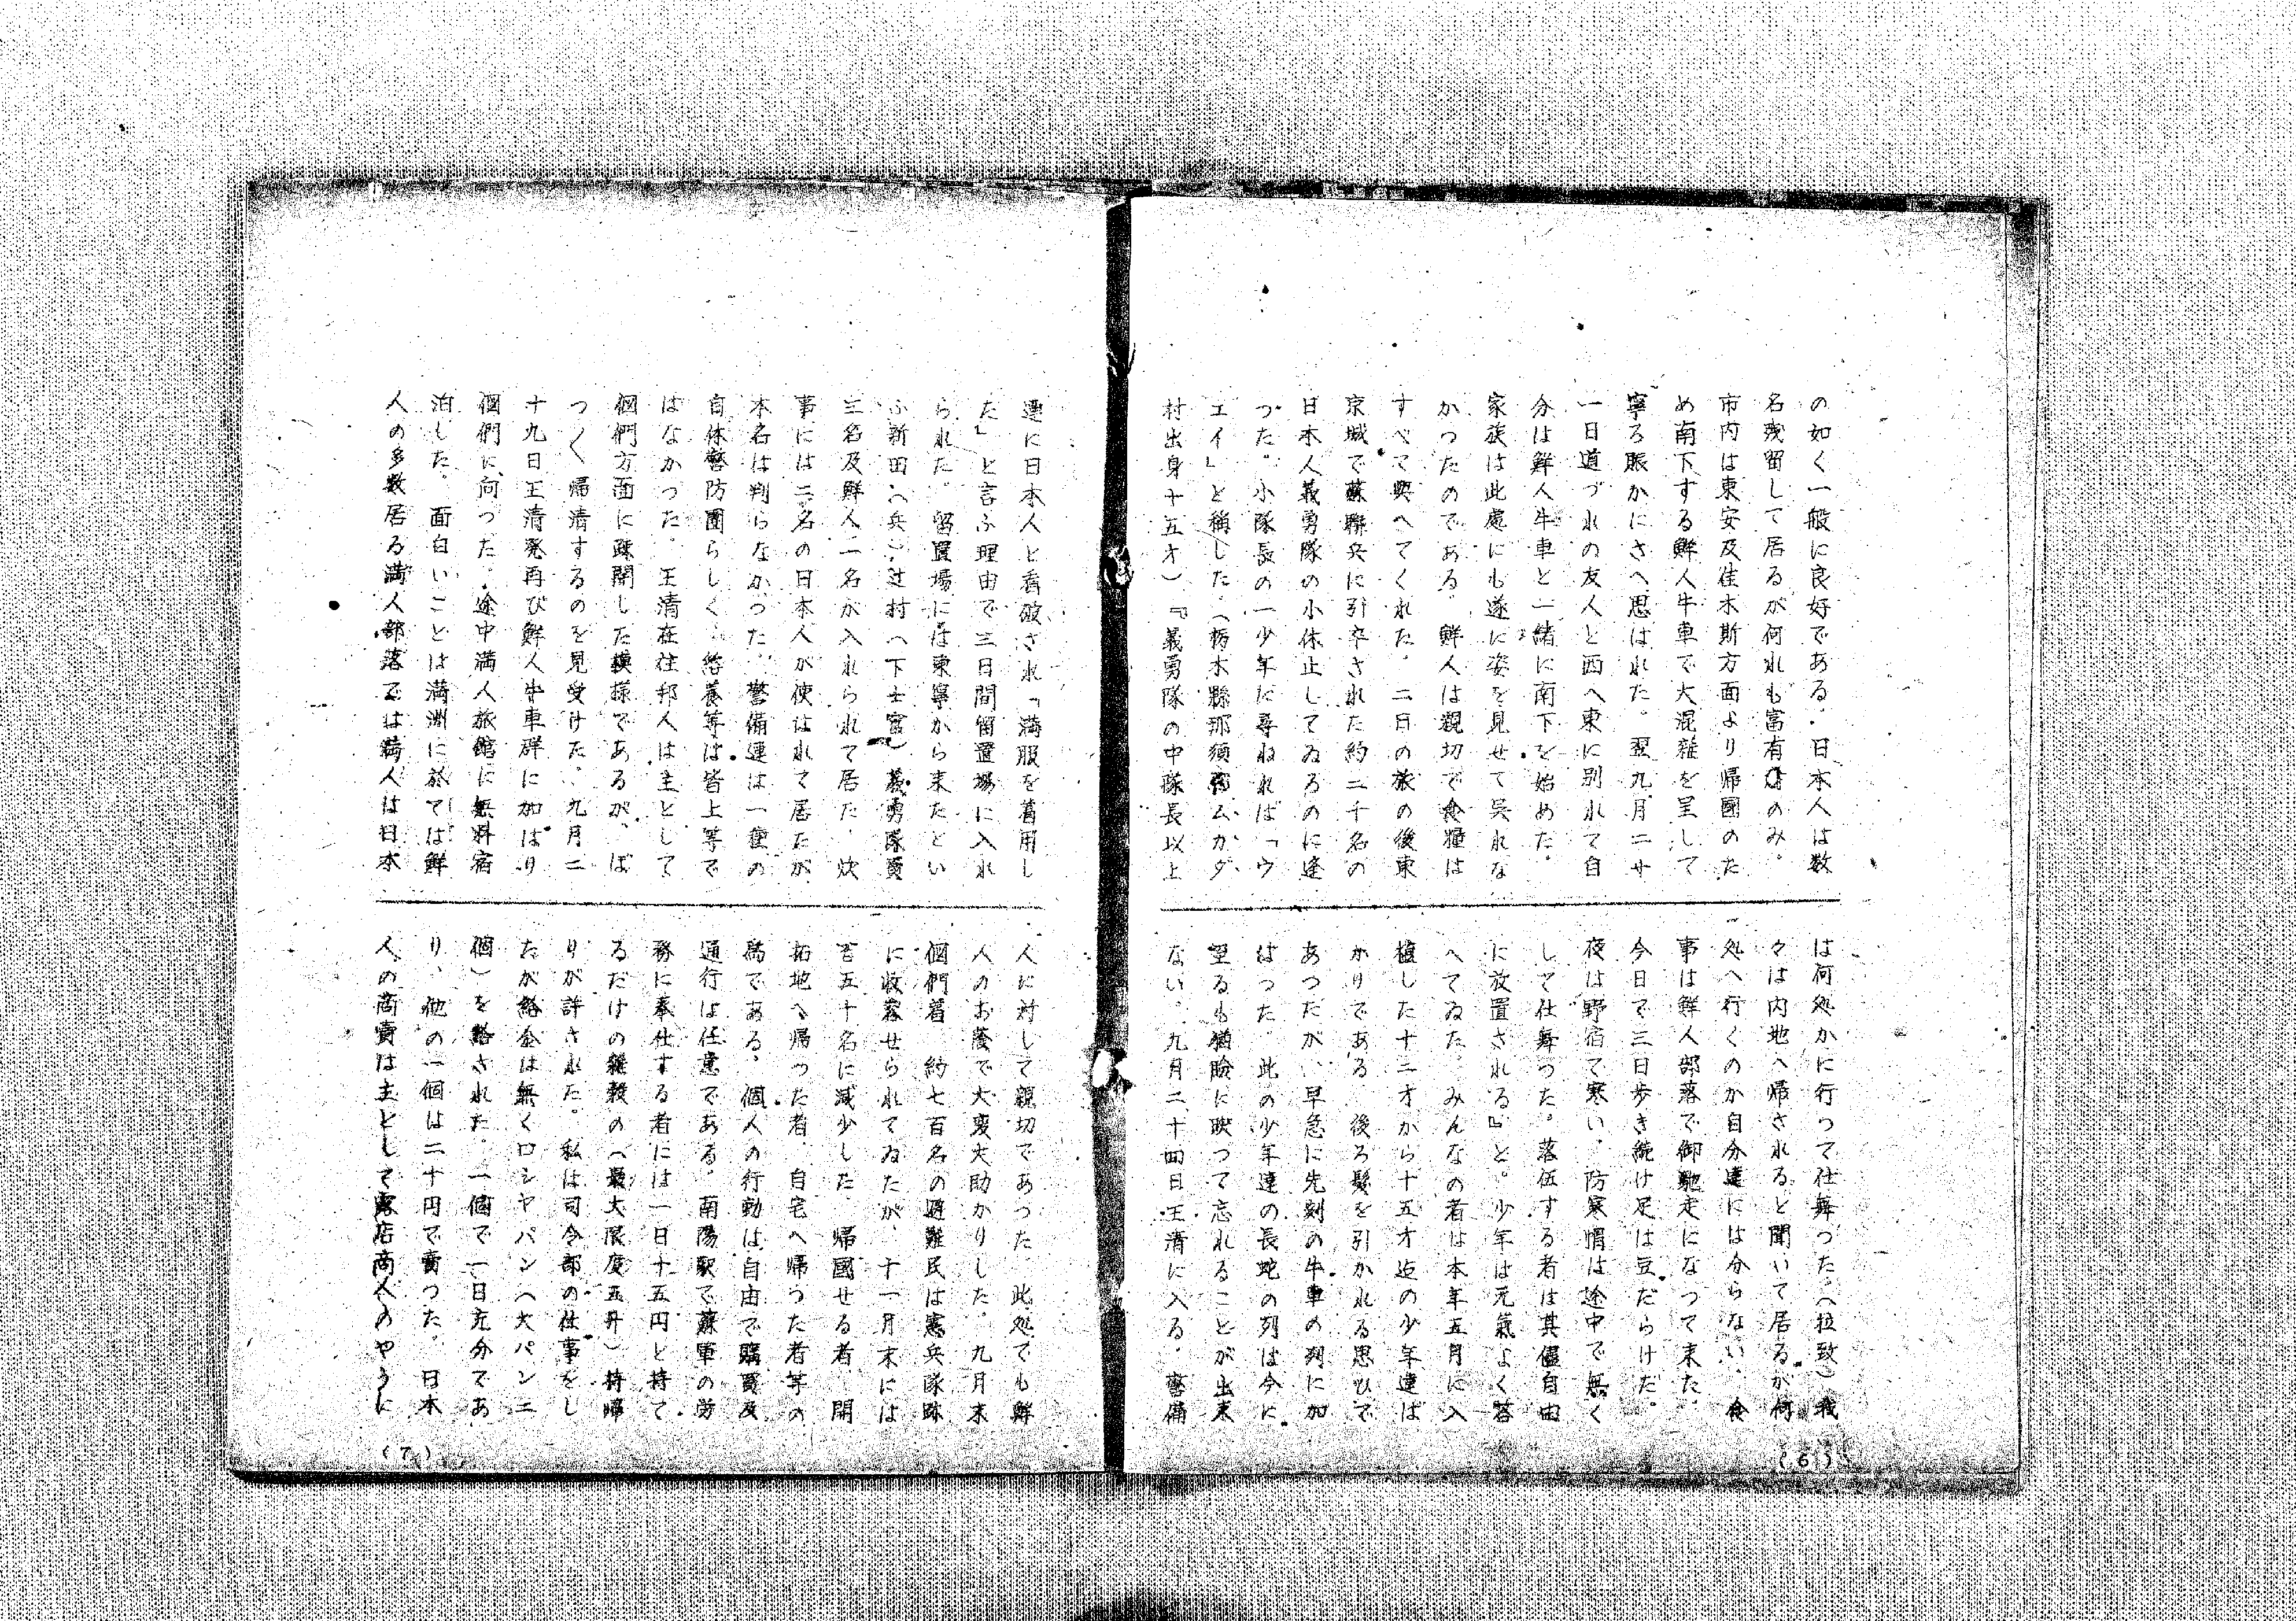 の如く一般に良好である．日本人は数
名残留して居るが何れも富有のみ。
市内は東安及佳木斯方面より帰國のた
め南下する鮮人牛車で大混雑を呈して
寧ろ賑かにさへ思はれた。翌九月二サ
一日道づれの友人と西へ東に別れて自
分は鮮人牛車と一緒に南下を始めた。
家族は此處にも遂に姿を見せて呉れな
かつたのである．鮮人は親切で食糧は
すべて興へてくれた。二日の旅の後東
京城で蘇聯兵に引卒された約二千名の
日本人義勇隊の小休止してゐるのに逢
つた。小隊長の一少年に尋ねれば「ウ
エイ」と稱した。（栃木縣那須ムカダ
村出身十五才）『義勇隊の中隊長以上
は何処かに行つて仕舞つた。（拉致）我
々は内地へ帰されると聞いて居るが何
処へ行くのか自分達には分らない．食
事は鮮人部落で御馳走になつて末た．
今日で三日歩き続け足は豆だらけだ。
夜は野宿で寒い．防寒帽は途中で無く
して仕舞つた。落伍する者は其儘自由
に放置される』と。少年は元氣よく答
へてゐた．みんなの者は本年五月に入
植した十二才から十五才迄の少年達ば
かりである．後ろ髪を引かれる思ひで
あつたが、早急に先刻の牛車の列に加
はつた．此の少年達の長蛇の列は今に
望るも猶瞼に映つて忘れることが出末
ない．九月二十四日王清に入る．警備
連に日本人と看破され「満服を着用し
た」と言ふ理由で三日間留置場に入れ
られた．留置場には東寧から末たとい
ふ新田（兵）．辻村（下士官）義勇隊員
三名及鮮人二名が入れられて居た．炊
事には二名の日本人が使はれて居たが
本名は判らなかつた．警備連は一種の
自休警防團らしく．給養等は皆上等で
はなかつた．王清在住邦人は主として
個們方面に疎開した模様であるが、ぼ
つ〱帰清するのを見受けた．九月二
十九日王清発再び鮮人牛車群に加はり
個們に向つた．途中満人旅館に無料宿
泊した．面白いことは満洲に於ては鮮
人の多数居る満人部落では満人は日本
人に対して親切であつた．此処でも鮮
人のお蔭で大変大助かりした．九月末
個們着　約七百名の避難民は憲兵隊跡
に收容せられてゐたが．十一月末には
百五十名に減少した　帰國せる者．開
拓地へ帰つた者．自宅へ帰つた者等の
為である．個人の行動は自由で購買及
通行は任意である．南陽駅で蘇軍の労
務に奉仕する者には一日十五円と持て
るだけの雜穀の（最大限度五升）持帰
りが許された．私は司令部の仕事をし
たが給金は無くロシヤパン（大パン二
個）を給された．一個で一日充分であ
り、他の一個は二十円で賣つた．日本
人の商賣は主として露店商人のやうに
(6)
(7)